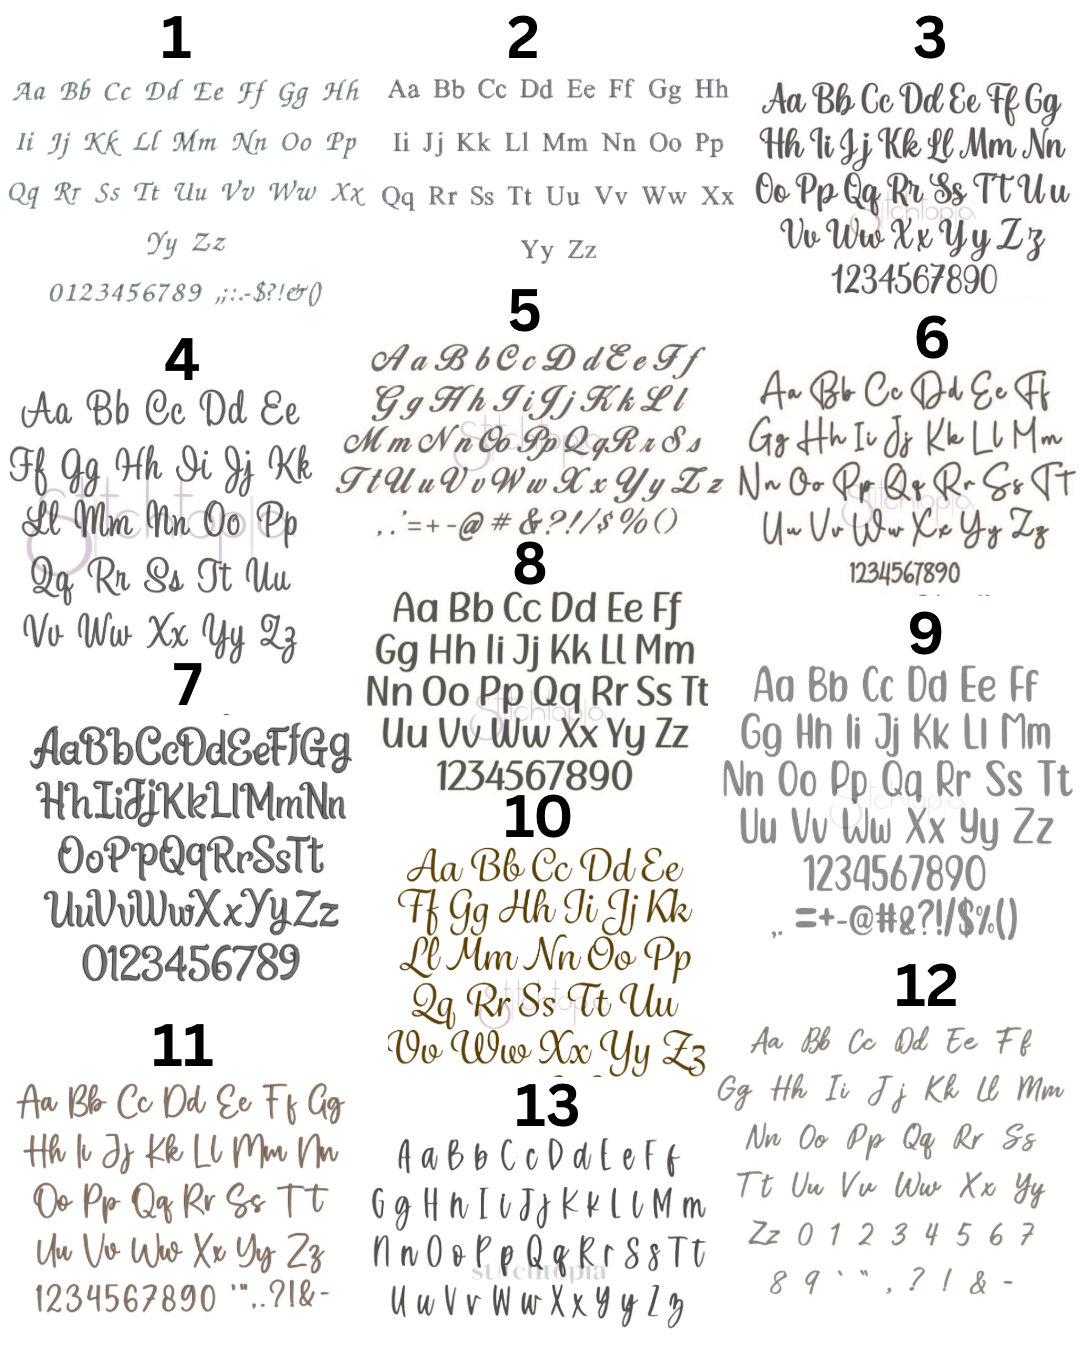 1
Aa Bb Cc Dd Ee Ff Gg Hh
Ii Jj Kk Ll Mm Nn Oo Pp
Qq Rr Ss Tt Uu Vv Ww Xx
Yy Zz
0123456789 ,;:.-$?!&()
2
Aa Bb Cc Dd Ee Ff Gg Hh
Ii Jj Kk Ll Mm Nn Oo Pp
Qq Rr Ss Tt Uu Vv Ww Xx
Yy Zz
3
Aa Bb Cc Dd Ee Ff Gg
Hh Ii Jj Kk Ll Mm Nn
Oo Pp Qq Rr Ss Tt Uu
Stitchtopia
Vv Ww Xx Yy Zz
1234567890
4
Aa Bb Cc Dd Ee
Ff Gg Hh Ii Jj Kk
Ll Mm Nn Oo Pp
Stitchtopia
Qq Rr Ss Tt Uu
Vv Ww Xx Yy Zz
5
Aa Bb Cc Dd Ee Ff
Gg Hh Ii Jj Kk Ll
Mm Nn Oo Pp Qq Rr Ss
Stitchtopia
Tt Uu Vv Ww Xx Yy Zz
,.'=+-@#&?!/$%()
6
Aa Bb Cc Dd Ee Ff
Gg Hh Ii Jj Kk Ll Mm
Nn Oo Pp Qq Rr Ss Tt
Stitchtopia
Uu Vv Ww Xx Yy Zz
1234567890
7
AaBbCcDdEeFfGg
HhIiJjKkLlMmNn
OoPpQqRrSsTt
UuVvWwXxYyZz
0123456789
8
Aa Bb Cc Dd Ee Ff
Gg Hh Ii Jj Kk Ll Mm
Nn Oo Pp Qq Rr Ss Tt
Stitchtopia
Uu Vv Ww Xx Yy Zz
1234567890
9
Aa Bb Cc Dd Ee Ff
Gg Hh Ii Jj Kk Ll Mm
Nn Oo Pp Qq Rr Ss Tt
Stitchtopia
Uu Vv Ww Xx Yy Zz
1234567890
,. =+-@#&?!/$%()
10
Aa Bb Cc Dd Ee
Ff Gg Hh Ii Jj Kk
Ll Mm Nn Oo Pp
Qq Rr Ss Tt Uu
Stitchtopia
Vv Ww Xx Yy Zz
11
Aa Bb Cc Dd Ee Ff Gg
Hh Ii Jj Kk Ll Mm Nn
Oo Pp Qq Rr Ss Tt
Uu Vv Ww Xx Yy Zz
1234567890 '",.?!&-
12
Aa Bb Cc Dd Ee Ff
Gg Hh Ii Jj Kk Ll Mm
Nn Oo Pp Qq Rr Ss
Tt Uu Vv Ww Xx Yy
Zz 0 1 2 3 4 5 6 7
8 9 ' " , ? ! & -
13
Aa Bb Cc Dd Ee Ff
Gg Hh Ii Jj Kk Ll Mm
Nn Oo Pp Qq Rr Ss Tt
stitchtopia
Uu Vv Ww Xx Yy Zz